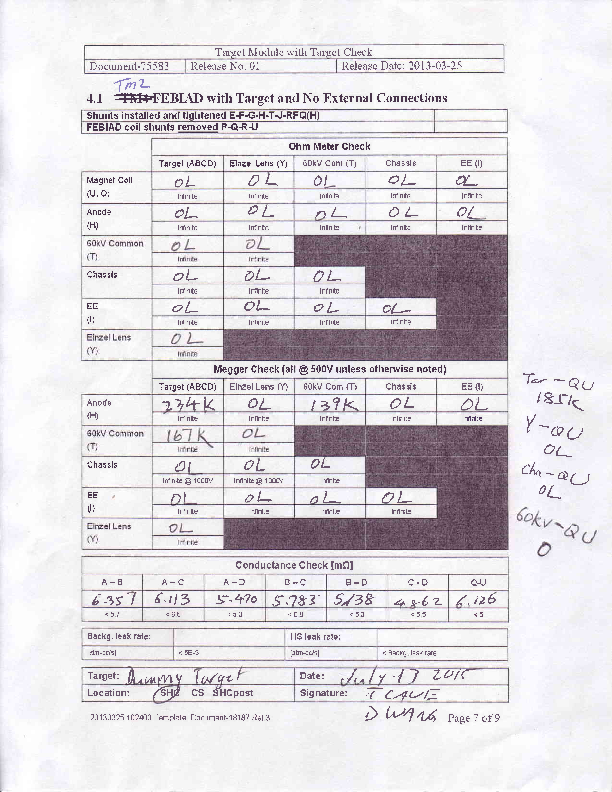 Target Module with Target Check
Document-75583 Release No. 01 Release Date: 2013-03-25
TM2
4.1 TM4 FEBIAD with Target and No External Connections
Shunts installed and tightened E-F-G-H-T-J-RFQ(H)
FEBIAD coil shunts removed P-Q-R-U
Ohm Meter Check
Target (ABCD) Einzel Lens (Y) 60kV Com (T) Chassis EE (I)
Magnet Coil OL OL OL OL OL
Infinite Infinite Infinite Infinite Infinite
Anode OL OL OL OL OL
(H) Infinite Infinite Infinite Infinite Infinite
60kV Common OL OL
(T) Infinite Infinite
Chassis OL OL OL
Infinite Infinite Infinite
EE OL OL OL OL
(I) Infinite Infinite Infinite Infinite
Einzel Lens OL
(Y) Infinite
Megger Check (all @ 500V unless otherwise noted)
Target (ABCD) Einzel Lens (Y) 60kV Com (T) Chassis EE (I)
Anode 234K OL 139K OL OL
(H) Infinite Infinite Infinite Infinite Infinite
60kV Common 167K OL
(T) Infinite Infinite
Chassis OL OL OL
Infinite @ 1000V Infinite @ 1000V Infinite
EE OL OL OL OL
(I) Infinite Infinite Infinite Infinite
Einzel Lens OL
(Y) Infinite
Tar-QU
185K
Y-QU
OL
Cha-QU
OL
60kv-QU
0
Conductance Check [mΩ]
A-B A-C A-D B-C B-D C-D Q-U
6.357 6.113 5.470 5.783 5.138 48.62 6.126
Backg. leak rate: HS leak rate:
[atm-cc/s] < 5E-9 [atm-cc/s] < Backg. leak rate
Target: Dummy Target Date: July 17 2015
Location: SHC CS SHCpost Signature: T CAVE
D WANG
Page 7 of 9